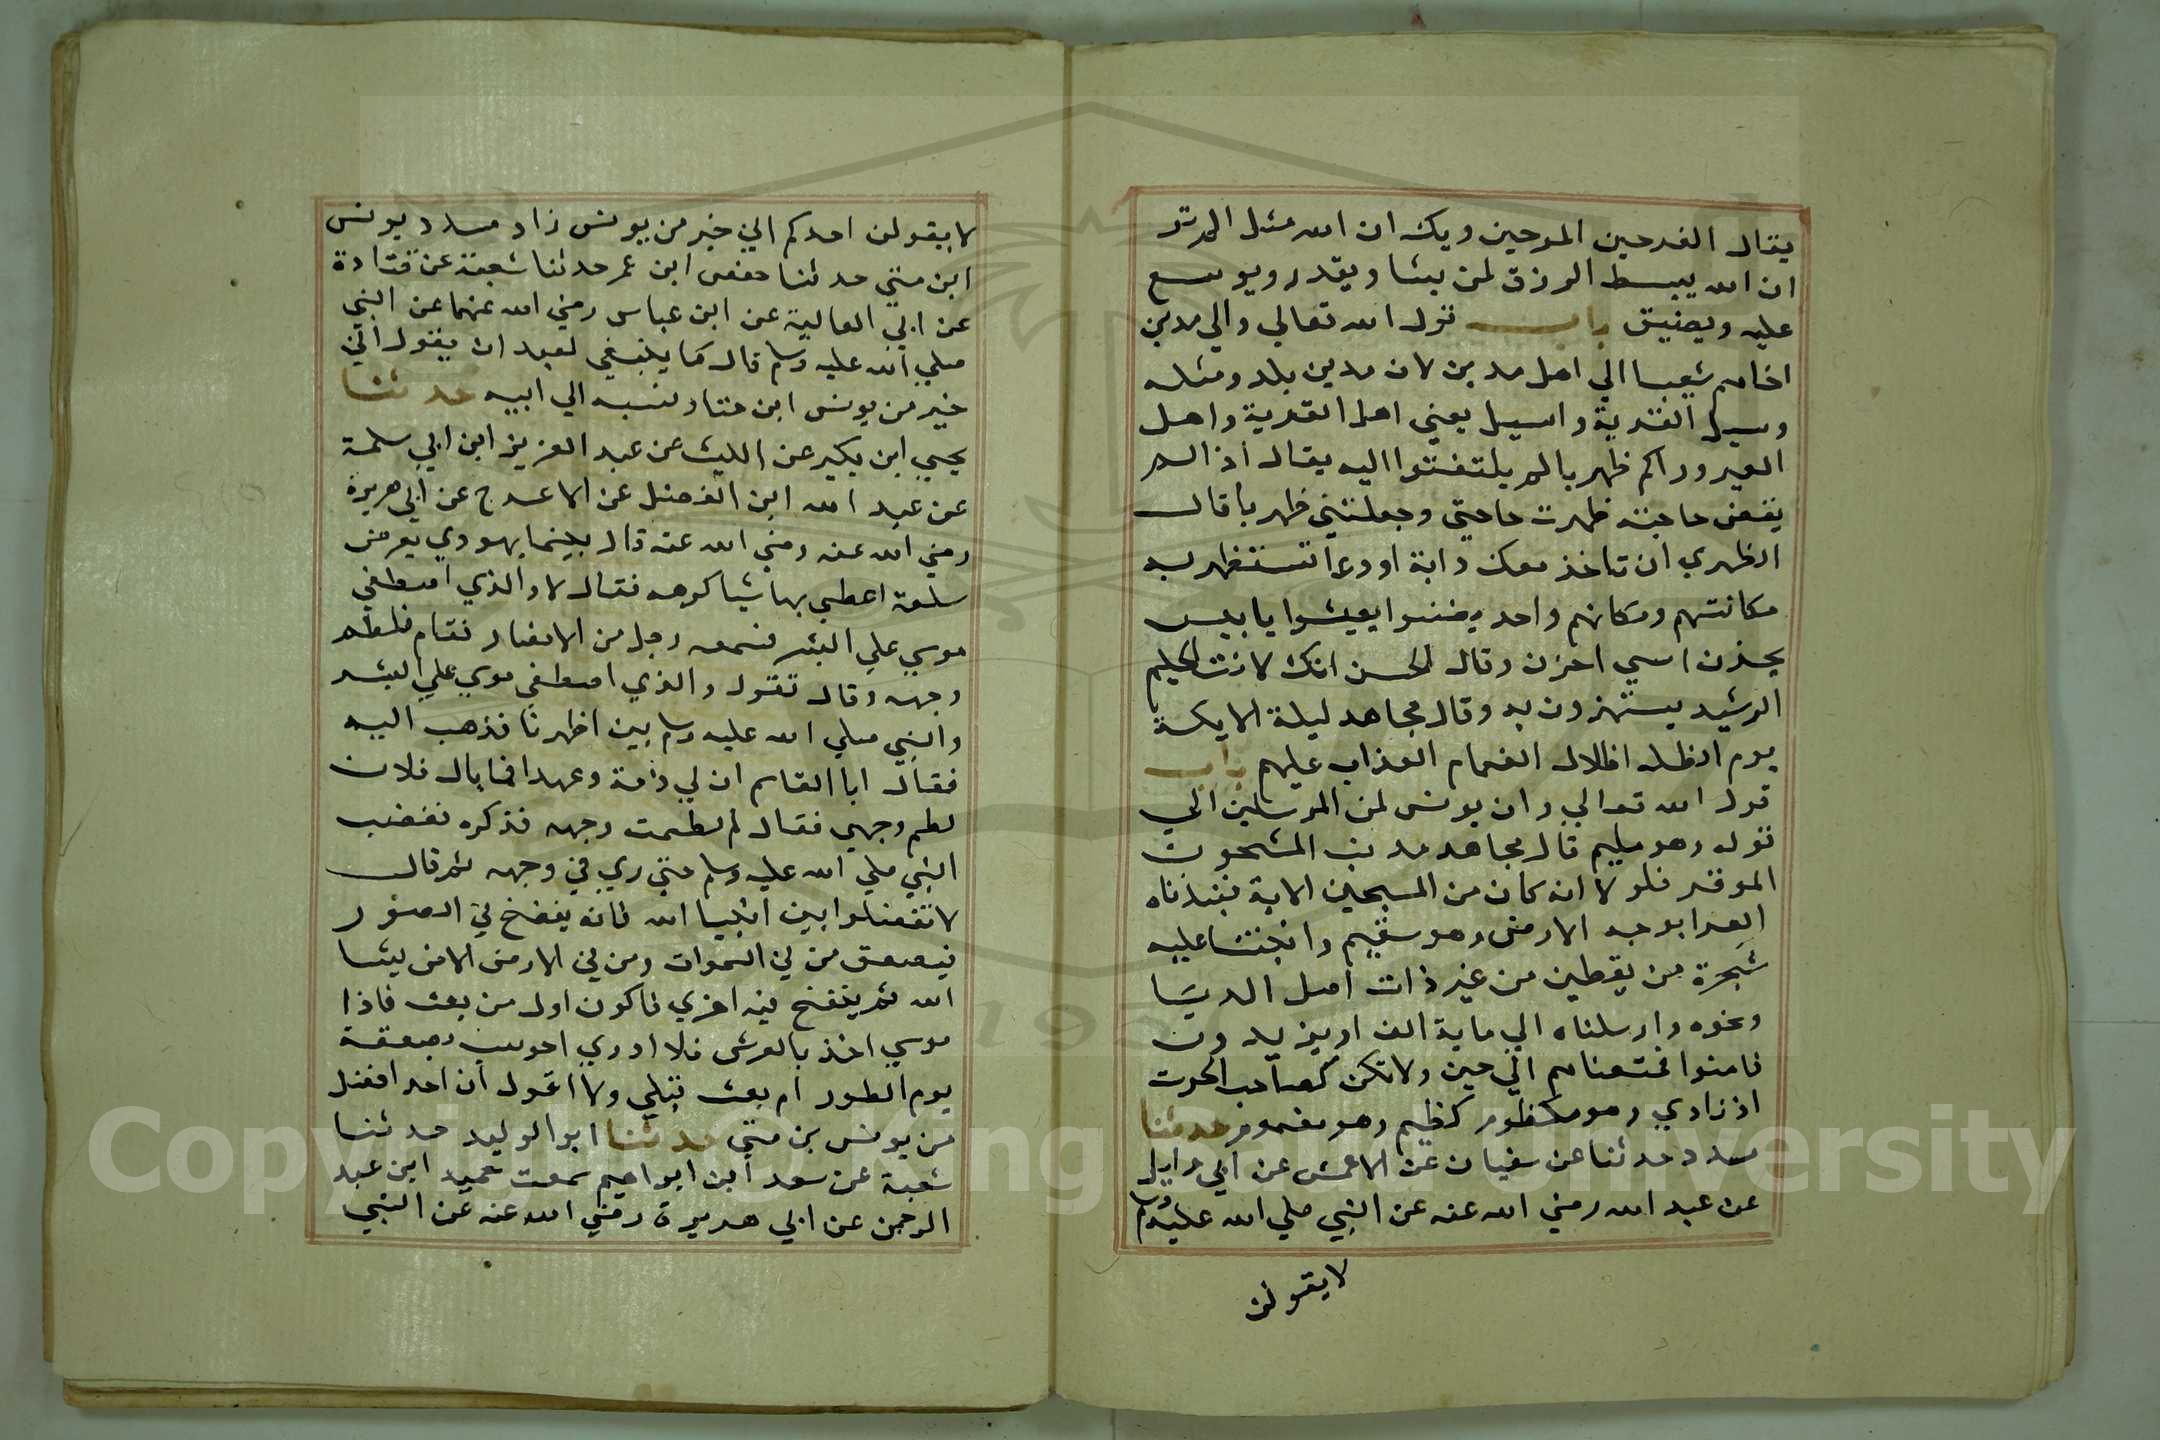 يقال الفرحين المرحين ويك ان الله مثل الم تر
ان الله يبسط الرزق لمن يشا ويقدر ويوسع
عليه ويضيق باب قول الله تعالي والي مدين
اخاهم شعيبا الي اهل مدين لان مدين بلد ومثله
وسيل القرية واسيل يعني اهل القرية واهل
العير وراكم ظهريا لم يلتفتوا اليه يقال اذا لم
يقض حاجته ظهرت حاجتي وجعلتني ظهريا قال
الظهري ان تاخذ معك دابة او وعا تستظهر به
مكانتهم ومكانهم واحد يغنوا يعيشوا ياييس
يحزن اسي احزن وقال الحسن انك لانت الحليم
الرشيد يستهزون به وقال مجاهد ليلة الايكة
يوم الظلة اظلال الغمام العذاب عليهم باب
قول الله تعالي وان يونس لمن المرسلين الي
قوله وهو مليم قال مجاهد مدنب المشحون
الموقر فلولا انه كان من المسبحين الاية فنبذناه
بالعرا بوجه الارض وهو سقيم وانبتنا عليه
شجرة من يقطين من غير ذات اصل الدبا
ونحوه وارسلناه الي ماية الف او يزيدون
فامنوا فمتعناهم الي حين ولا تكن كصاحب الحوت
اذ نادي وهو مكظوم كظيم وهو مغموم حدثنا
مسدد حدثنا عن سفيان عن الاعمش عن ابي وايل
عن عبد الله رضي الله عنه عن النبي صلي الله عليه وسلم
لا يقولن
لا يقولن احدكم اني خير من يونس زاد مسدد يونس
ابن متي حدثنا حفص ابن عمر حدثنا شعبة عن قتادة
عن ابي العالية عن ابن عباس رضي الله عنهما عن النبي
صلي الله عليه وسلم قال ما ينبغي لعبد ان يقول اني
خير من يونس ابن متا ونسبه الي ابيه حدثنا
يحيي ابن بكير عن الليث عن عبد العزيز ابن ابي سلمة
عن عبد الله ابن الفضل عن الاعرج عن ابي هريرة
رضي الله عنه رضي الله عنه قال بينما يهودي يعرض
سلعة اعطي بها شيا كرهه فقال لا والذي اصطفي
موسي علي البشر فسمعه رجل من الانصار فقام فلطم
وجهه وقال تقول والذي اصطفي موسي علي البشر
والنبي صلي الله عليه وسلم بين اظهرنا فذهب اليه
فقال ابا القاسم ان لي ذمة وعهدا فما بال فلان
لطم وجهي فقال لم لطمت وجهه فذكره فغضب
النبي صلي الله عليه وسلم حتي ري في وجهه ثم قال
لا تفضلوا بين انبيا الله فانه ينفخ في الصور
فيصعق من في السموات ومن في الارض الا من يشا
الله ثم ينفخ فيه اخري فاكون اول من بعث فاذا
موسي اخذ بالعرش فلا ادري احوسب بصعقة
يوم الطور ام بعث قبلي ولا اقول ان احدا افضل
من يونس بن متي حدثنا ابو الوليد حدثنا
شعبة عن سعد ابن ابراهيم سمعت حميد ابن عبد
الرحمن عن ابي هريرة رضي الله عنه عن النبي
Copyright © King Saud University
1957